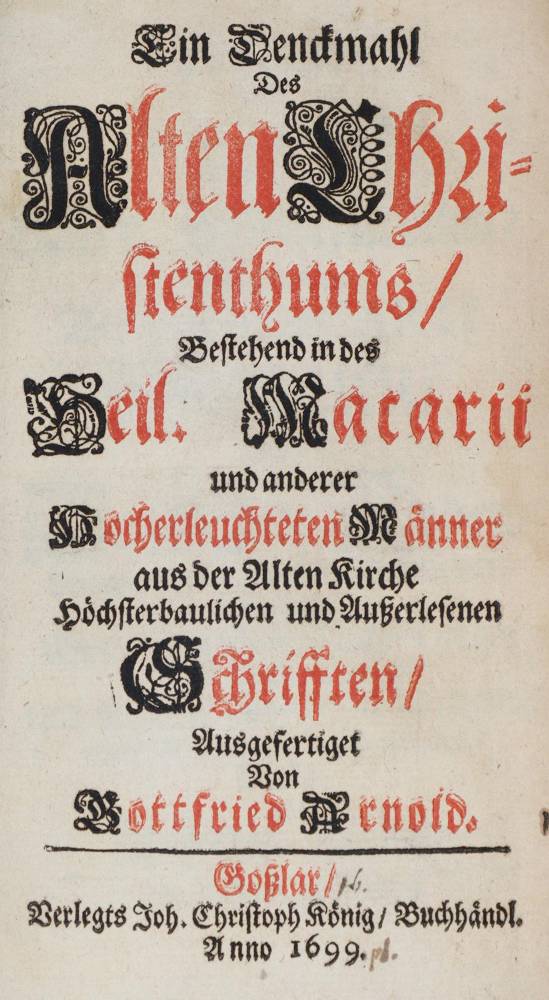 Ein Denckmahl
Des
Alten Chri-
stenthums/
Bestehend in des
Heil. Macarii
und anderer
Hocherleuchteten Männer
aus der Alten Kirche
Höchsterbaulichen und Außerlesenen
Schrifften/
Ausgefertiget
Von
Gottfried Arnold.
Goßlar/
Verlegts Joh. Christoph König/ Buchhändl.
Anno 1699.